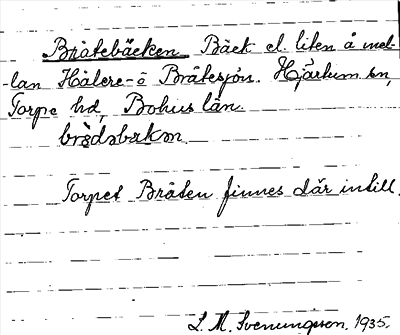 Bråtebäcken Bäck el. liten å mel-
lan Hålere-ö Bråtesjön. Hjärtum sn,
Torpe hd, Bohus län.
Torpet Bråten finnes där intill.
L. M. Svenungsson, 1935.